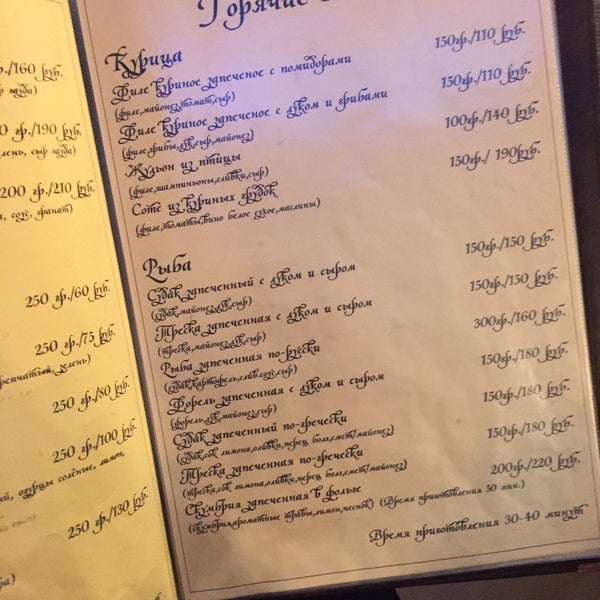 Горячие
Курица
Филе куриное запеченое с помидорами 150гр./110 руб.
(филе,майонез,томат,сыр)
Филе куриное запеченое с луком и грибами 150гр./110 руб.
(филе,грибы,лук,сыр,майонез)
Жульен из птицы 100гр./140 руб.
(филе,шампиньоны,сливки,сыр)
Соте из куриных грудок 150гр./ 190руб.
(филе,томаты,вино белое сухое,маслины)
Рыба
Судак запеченный с луком и сыром 150гр./150 руб.
(судак,майонез,лук,сыр)
Треска запеченная с луком и сыром 150гр./150 руб.
(треска,майонез,лук,сыр)
Рыба запеченная по-русски 300гр./160 руб.
(судак,картофель,слив.соус,сыр)
Форель запеченная с луком и сыром 150гр./180 руб.
(форель,лук,майонез,сыр)
Судак запеченный по-гречески 150гр./180 руб.
(судак,сок лимона,оливки,перец болг,смет/майонез)
Треска запеченная по-гречески 150гр./180 руб.
(треска,сок лимона,оливки,перец болг,смет/майонез)
Скумбрия запеченная в фольге 200гр./220 руб.
(скумбрия,ароматные травы,лимон,чеснок) (Время приготовления 50 мин.)
Время приготовления 30-40 минут
гр./160 руб.
гр./190 руб.
сыр
200 гр./210 руб.
соус, гранат)
250 гр./60 руб.
250 гр./75 руб.
зелень)
250 гр./80 руб.
250 гр./100 руб.
огурцы солёные, лимон,
250 гр./130 руб.